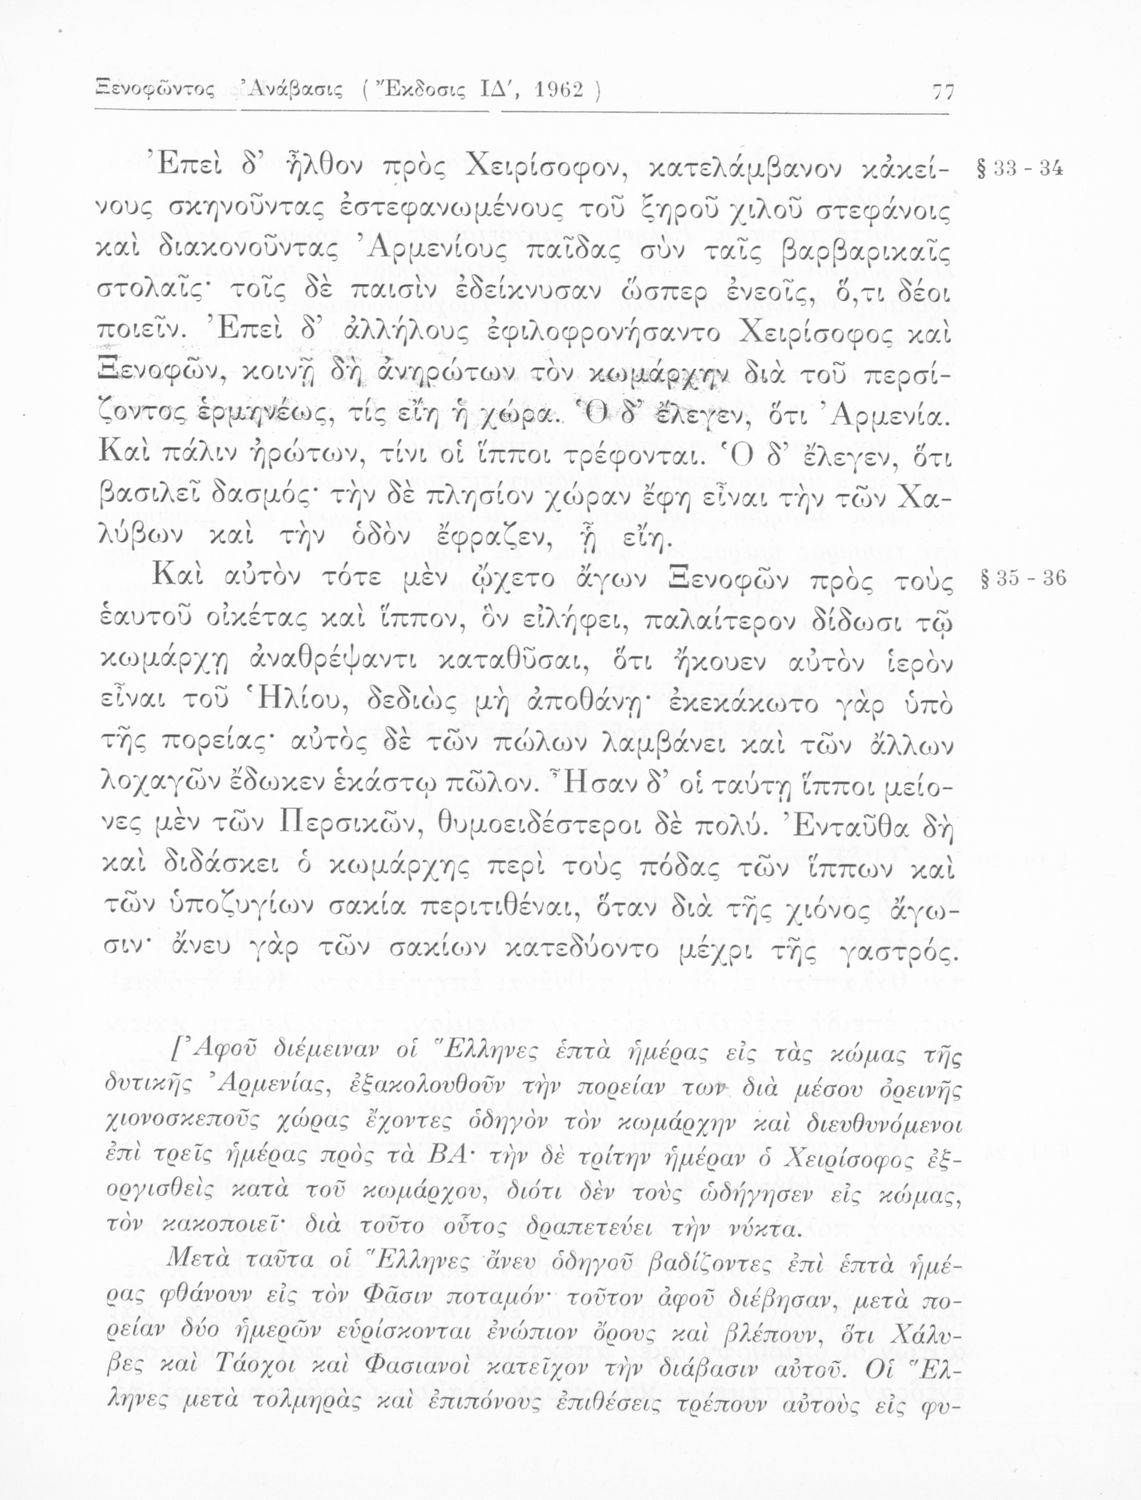 Ξενοφῶντος Ἀνάβασις ( Ἔκδοσις ΙΔ′, 1962 ) 77
Ἐπεὶ δ’ ἦλθον πρὸς Χειρίσοφον, κατελάμβανον κἀκεί- § 33 - 34
νους σκηνοῦντας ἐστεφανωμένους τοῦ ξηροῦ χιλοῦ στεφάνοις
καὶ διακονοῦντας Ἀρμενίους παῖδας σὺν ταῖς βαρβαρικαῖς
στολαῖς· τοῖς δὲ παισὶν ἐδείκνυσαν ὥσπερ ἐνεοῖς, ὅ,τι δέοι
ποιεῖν. Ἐπεὶ δ’ ἀλλήλους ἐφιλοφρονήσαντο Χειρίσοφος καὶ
Ξενοφῶν, κοινῇ δὴ ἀνηρώτων τὸν κωμάρχην διὰ τοῦ περσί-
ζοντος ἑρμηνέως, τίς εἴη ἡ χώρα. Ὁ δ’ ἔλεγεν, ὅτι Ἀρμενία.
Καὶ πάλιν ἠρώτων, τίνι οἱ ἵπποι τρέφονται. Ὁ δ’ ἔλεγεν, ὅτι
βασιλεῖ δασμός· τὴν δὲ πλησίον χώραν ἔφη εἶναι τὴν τῶν Χα-
λύβων καὶ τὴν ὁδὸν ἔφραζεν, ᾗ εἴη.
Καὶ αὐτὸν τότε μὲν ᾤχετο ἄγων Ξενοφῶν πρὸς τοὺς § 35 - 36
ἑαυτοῦ οἰκέτας καὶ ἵππον, ὃν εἰλήφει, παλαίτερον δίδωσι τῷ
κωμάρχῃ ἀναθρέψαντι καταθῦσαι, ὅτι ἤκουεν αὐτὸν ἱερὸν
εἶναι τοῦ Ἡλίου, δεδιὼς μὴ ἀποθάνῃ· ἐκεκάκωτο γὰρ ὑπὸ
τῆς πορείας· αὐτὸς δὲ τῶν πώλων λαμβάνει καὶ τῶν ἄλλων
λοχαγῶν ἔδωκεν ἑκάστῳ πῶλον. Ἦσαν δ’ οἱ ταύτῃ ἵπποι μείο-
νες μὲν τῶν Περσικῶν, θυμοειδέστεροι δὲ πολύ. Ἐνταῦθα δὴ
καὶ διδάσκει ὁ κωμάρχης περὶ τοὺς πόδας τῶν ἵππων καὶ
τῶν ὑποζυγίων σακία περιτιθέναι, ὅταν διὰ τῆς χιόνος ἄγω-
σιν· ἄνευ γὰρ τῶν σακίων κατεδύοντο μέχρι τῆς γαστρός.
[Ἀφοῦ διέμειναν οἱ Ἕλληνες ἑπτὰ ἡμέρας εἰς τὰς κώμας τῆς
δυτικῆς Ἀρμενίας, ἐξακολουθοῦν τὴν πορείαν των διὰ μέσου ὀρεινῆς
χιονοσκεποῦς χώρας ἔχοντες ὁδηγὸν τὸν κωμάρχην καὶ διευθυνόμενοι
ἐπὶ τρεῖς ἡμέρας πρὸς τὰ ΒΑ· τὴν δὲ τρίτην ἡμέραν ὁ Χειρίσοφος ἐξ-
οργισθεὶς κατὰ τοῦ κωμάρχου, διότι δὲν τοὺς ὡδήγησεν εἰς κώμας,
τὸν κακοποιεῖ· διὰ τοῦτο οὗτος δραπετεύει τὴν νύκτα.
Μετὰ ταῦτα οἱ Ἕλληνες ἄνευ ὁδηγοῦ βαδίζοντες ἐπὶ ἑπτὰ ἡμέ-
ρας φθάνουν εἰς τὸν Φᾶσιν ποταμόν· τοῦτον ἀφοῦ διέβησαν, μετὰ πο-
ρείαν δύο ἡμερῶν εὑρίσκονται ἐνώπιον ὄρους καὶ βλέπουν, ὅτι Χάλυ-
βες καὶ Τάοχοι καὶ Φασιανοὶ κατεῖχον τὴν διάβασιν αὐτοῦ. Οἱ Ἕλ-
ληνες μετὰ τολμηρὰς καὶ ἐπιπόνους ἐπιθέσεις τρέπουν αὐτοὺς εἰς φυ-